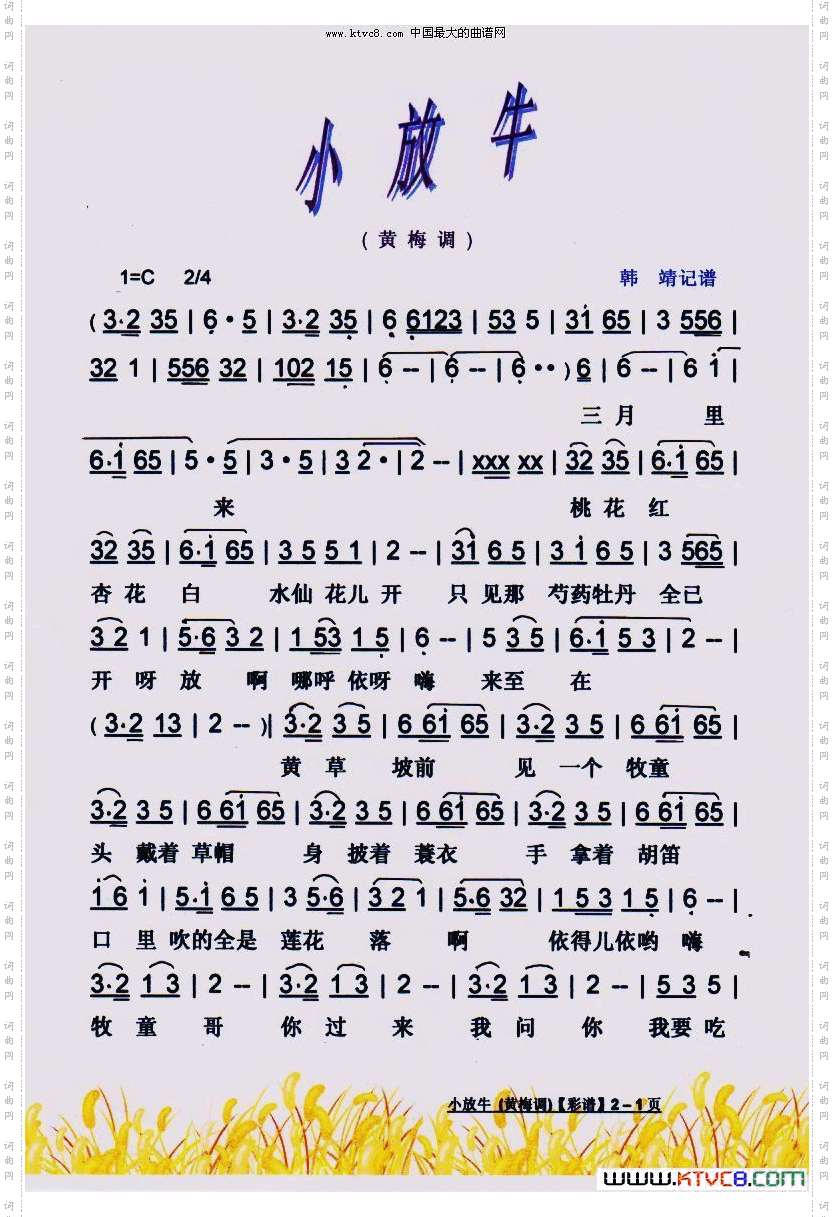 www.ktvc8.com 中国最大的曲谱网
小放牛
(黄梅调)
1=C 2/4 韩 靖记谱
( 3·2 35 | 6·5 | 3·2 35 | 6 6123 | 53 5 | 3i 65 | 3 556 |
32 1 | 556 32 | 102 15 | 6 -- | 6 -- | 6 ·· ) 6 | 6 -- | 6 i |
三 月 里
6·i 65 | 5·5 | 3·5 | 3 2· | 2 -- | xxx xx | 32 35 | 6·i 65 |
来 桃 花 红
32 35 | 6·i 65 | 3 5 5 1 | 2 -- | 3i 6 5 | 3 i 6 5 | 3 565 |
杏 花 白 水仙 花儿 开 只 见那 芍药牡丹 全已
3 2 1 | 5·6 3 2 | 1 53 1 5 | 6 -- | 5 3 5 | 6·i 5 3 | 2 -- |
开 呀 放 啊 哪呼 依呀 嗨 来至 在
( 3·2 13 | 2 -- )| 3·2 3 5 | 6 6i 65 | 3·2 3 5 | 6 6i 65 |
黄 草 坡前 见 一个 牧童
3·2 3 5 | 6 6i 65 | 3·2 3 5 | 6 6i 65 | 3·2 3 5 | 6 6i 65 |
头 戴着 草帽 身 披着 蓑衣 手 拿着 胡笛
i 6 i | 5·i 6 5 | 3 5·6 | 3 2 1 | 5·6 32 | 1 5 3 1 5 | 6 -- |
口 里 吹的全是 莲花 落 啊 依得儿依哟 嗨
3·2 1 3 | 2 -- | 3·2 1 3 | 2 -- | 3·2 1 3 | 2 -- | 5 3 5 |
牧 童 哥 你 过 来 我 问 你 我要 吃
小放牛 (黄梅调)【彩谱】2－1页
www.KTVC8.com
词曲网